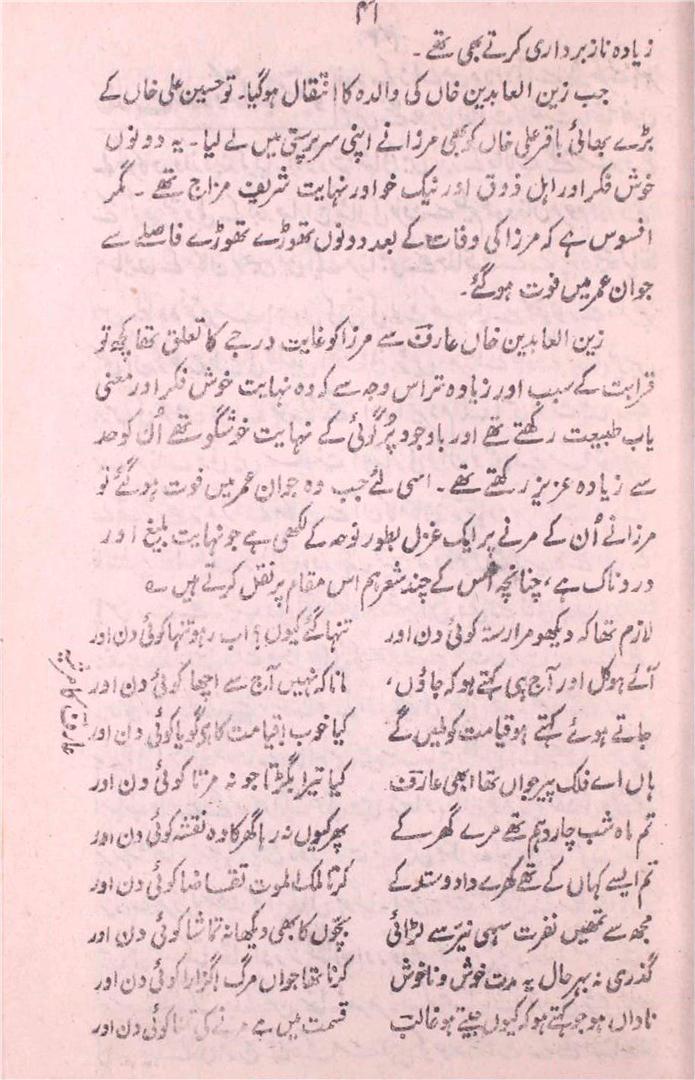 ۴۱
زیادہ ناز برداری کرتے بھی تھے۔
جب زین العابدین خاں کی والدہ کا انتقال ہوگیا۔ تو حسین علی خاں کے
بڑے بھائی باقر علی خاں کو بھی مرزا نے اپنی سرپرستی میں لے لیا۔ یہ دونوں
خوش فکر اور اہل ذوق اور نیک خو اور نہایت شریف مزاج تھے۔ مگر
افسوس ہے کہ مرزا کی وفات کے بعد دونوں تھوڑے تھوڑے فاصلے سے
جوان عمر میں فوت ہوگئے۔
زین العابدین خاں عارف سے مرزا کو غایت درجے کا تعلق تھا کچھ تو
قرابت کے سبب اور زیادہ تر اس وجہ سے کہ وہ نہایت خوش فکر اور معنی
یاب طبیعت رکھتے تھے اور باوجود پُرگوئی کے نہایت خوشگو تھے اُن کو حد
سے زیادہ عزیز رکھتے تھے۔ اسی لئے جب وہ جوان عمر میں فوت ہوگئے تو
مرزا نے اُن کے مرنے پر ایک غزل بطور نوحہ کے لکھی ہے جو نہایت بلیغ اور
دردناک ہے، چنانچہ اُس کے چند شعر ہم اس مقام پر نقل کرتے ہیں ؎
لازم تھا کہ دیکھو مرا رستہ کوئی دن اور تنہا گئے کیوں؟ اب رہو تنہا کوئی دن اور
آئے ہو کل اور آج ہی کہتے ہو کہ جاؤں، مانا کہ نہیں آج سے اچھا کوئی دن اور
جاتے ہوئے کہتے ہو قیامت کو ملیں گے کیا خوب! قیامت کا ہے گویا کوئی دن اور
ہاں اے فلک پیر جواں تھا ابھی عارف کیا تیرا بگڑتا جو نہ مرتا کوئی دن اور
تم ماہ شب چاردہم تھے مرے گھر کے پھر کیوں نہ رہا گھر کا وہ نقشہ کوئی دن اور
تم ایسے کہاں کے تھے کھرے داد و ستد کے کرتا ملک الموت تقاضا کوئی دن اور
مجھ سے تمھیں نفرت سہی نیّر سے لڑائی بچّوں کا بھی دیکھا نہ تماشا کوئی دن اور
گذری نہ بہر حال یہ مدت خوش و ناخوش کرنا تھا جواں مرگ! گزارا کوئی دن اور
ناداں ہو جو کہتے ہو کہ کیوں جیتے ہو غالب قسمت میں ہے مرنے کی تمنا کوئی دن اور
عارف کا مرثیہ